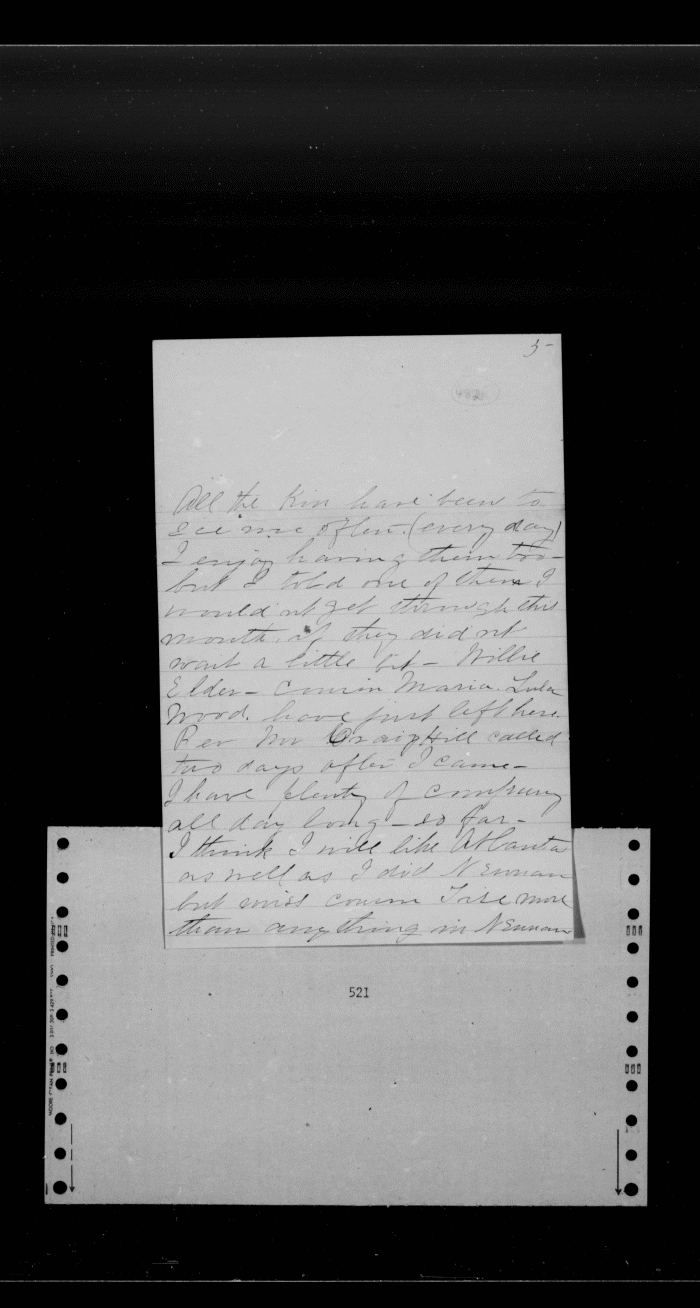 5-
All the Kin have been to
see me often. (every day)
I enjoy having them too-
but I told one of them I
would nt get through this
month, if they did nt
wait a little bit - Willie
Elder - Cousin Maria. Lula
Wood. have just left here.
Rev Mr Craighill called
two days after I came -
I have plenty of company
all day long - so far -
I think I will like Atlanta
as well as I did Newnan
but miss cousin more
than anything in Newnan
521